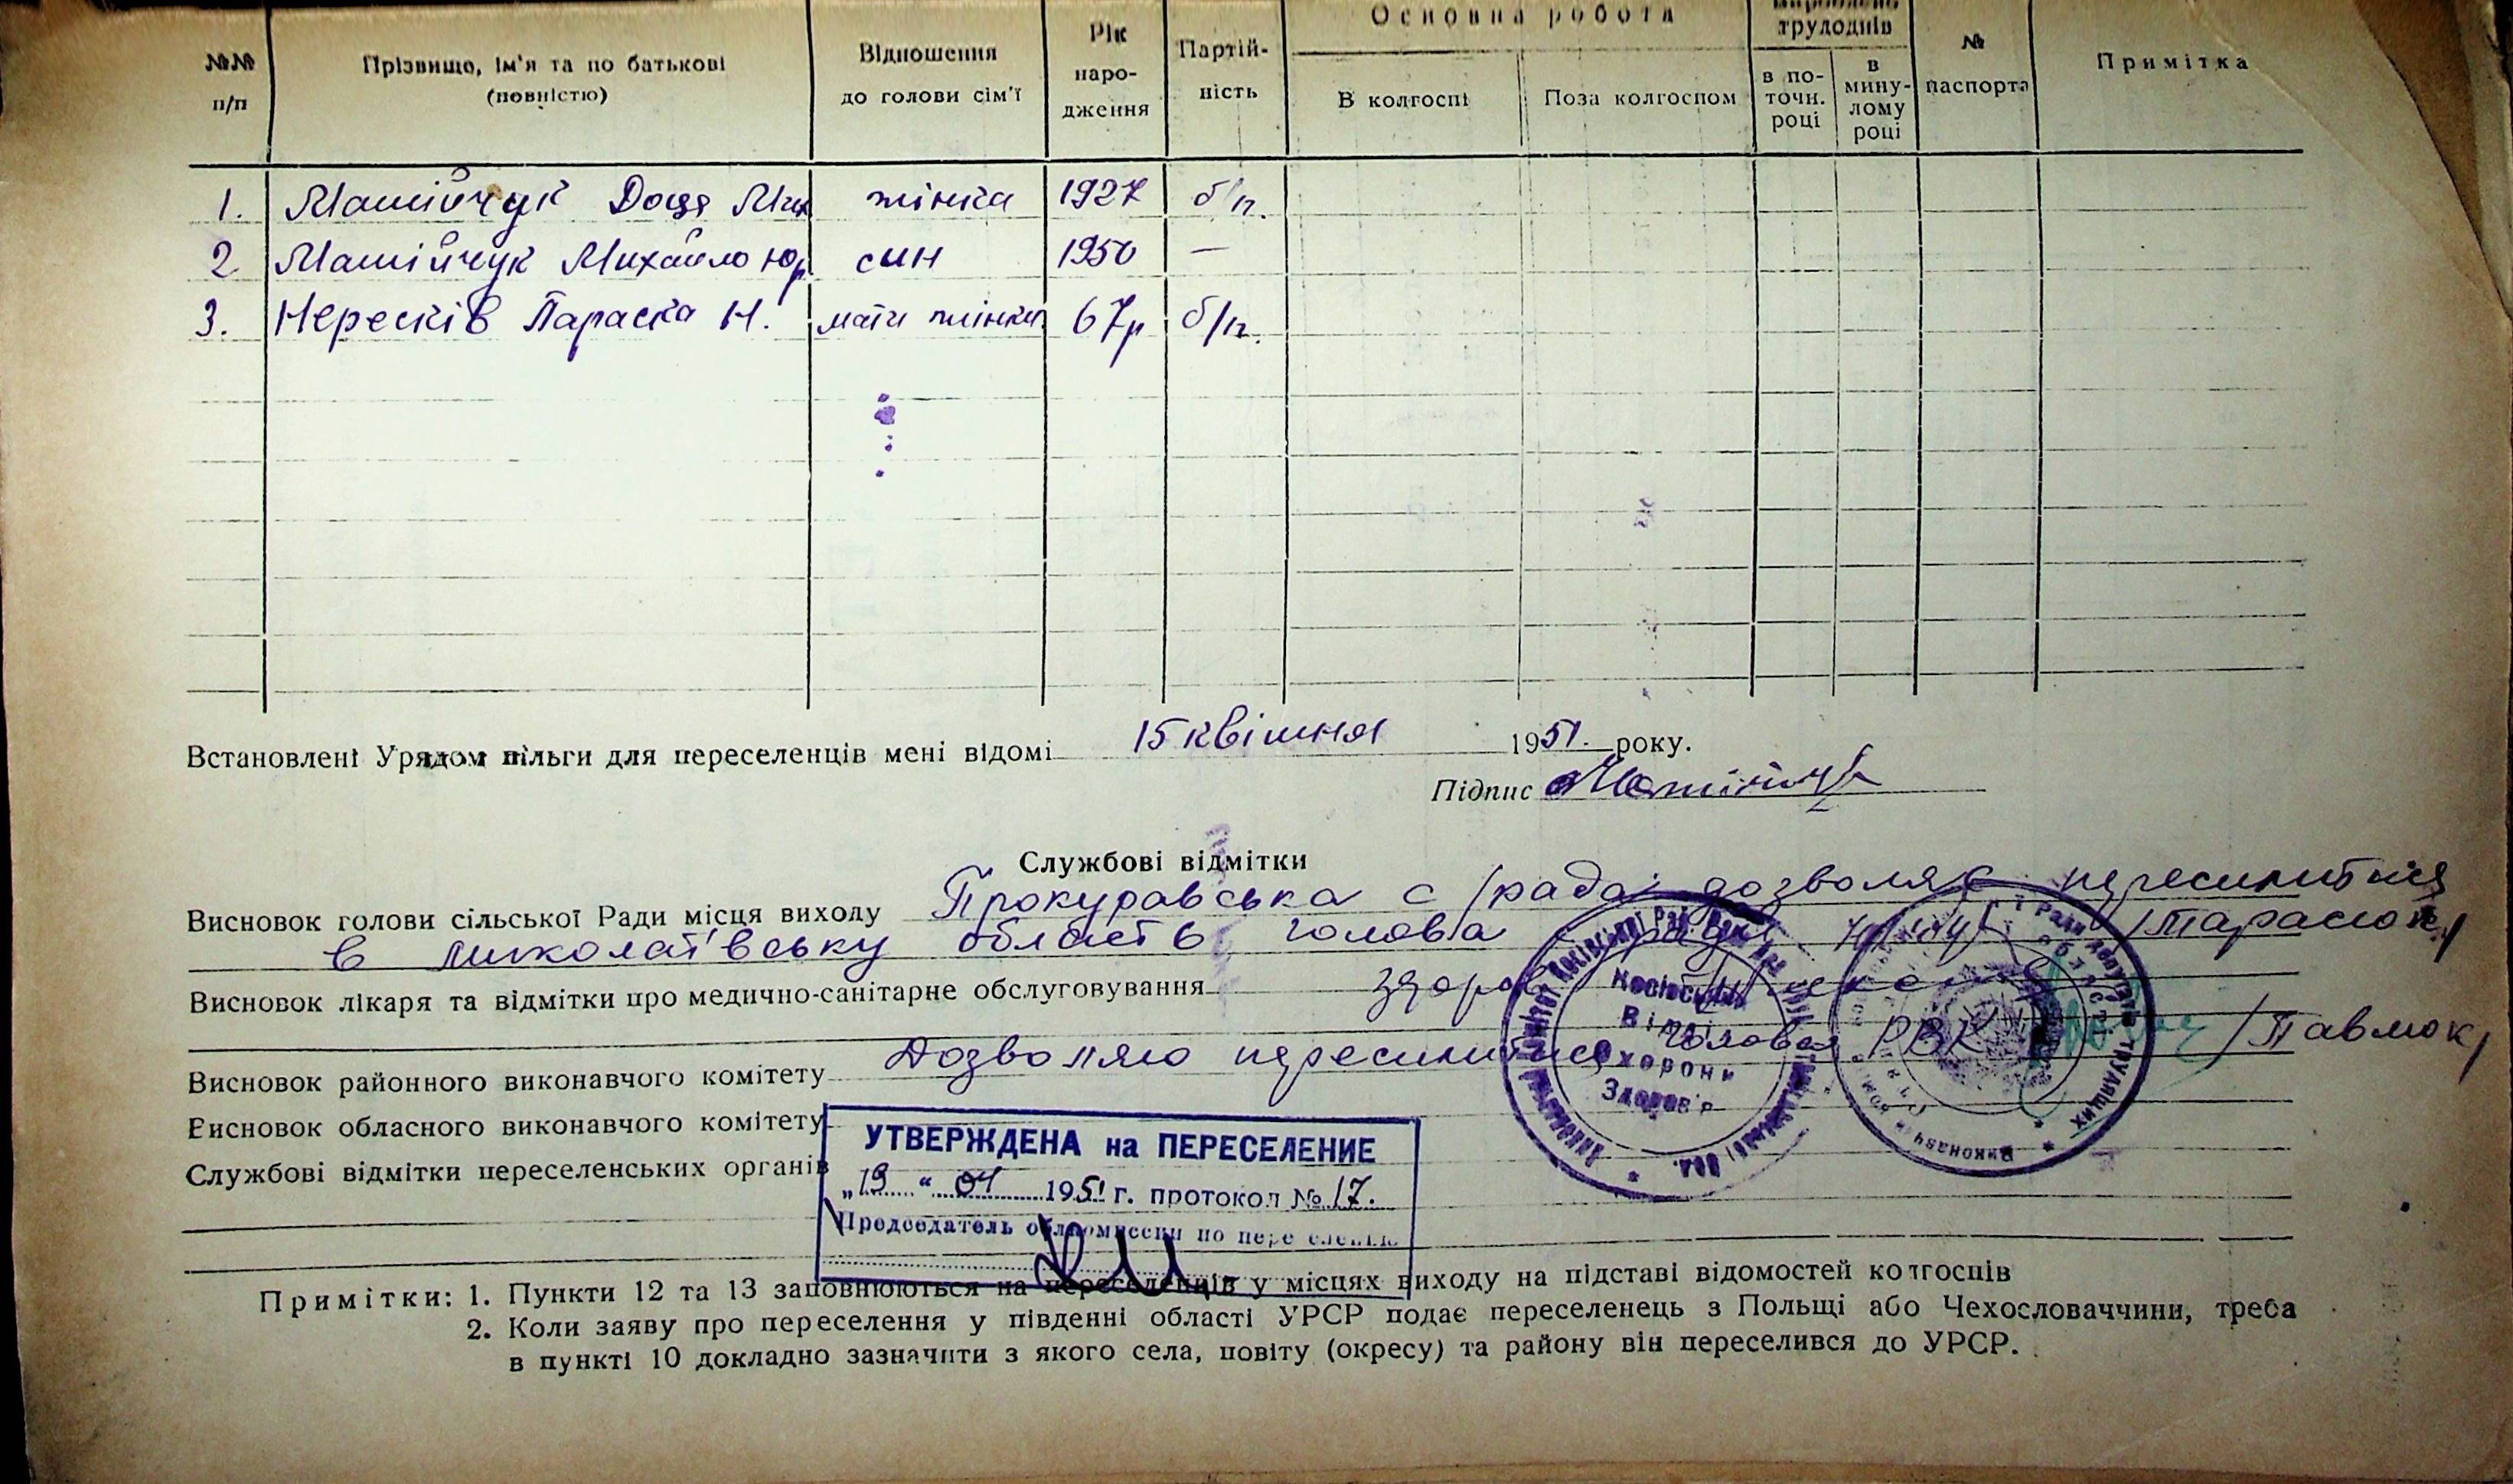 Основна робота
трудоднів
№№ п/п
Прізвище, ім'я та по батькові (повністю)
Відношення до голови сім'ї
Рік народження
Партійність
В колгоспі
Поза колгоспом
в поточн. році
в минулому році
№ паспорта
Примітка
1. Матійчук Доця Мих жінка 1927 б/п.
2 Матійчук Михайло Юр син 1950 —
3. Нересків Параска Н. мати жінки 67р б/п.
Встановлені Урядом пільги для переселенців мені відомі 15 квітня 1951. року.
Підпис Матійчук
Службові відмітки
Висновок голови сільської Ради місця виходу Прокуравська с/рада дозволяє переселитися
в Миколаївську область голова с/ради /Тарасюк/
Висновок лікаря та відмітки про медично-санітарне обслуговування
Висновок районного виконавчого комітету Дозволяю переселитися Голова РВК /Павлюк/
Висновок обласного виконавчого комітету
Службові відмітки переселенських органів
УТВЕРЖДЕНА на ПЕРЕСЕЛЕНИЕ
„19“ 04 1951 г. протокол № 17.
Председатель облкомиссии по переселению
Косівський
Відділ
Охорони
Здоров'я
Примітки: 1. Пункти 12 та 13 заповнюються на переселенців у місцях виходу на підставі відомостей колгоспів
2. Коли заяву про переселення у південні області УРСР подає переселенець з Польщі або Чехословаччини, треба
в пункті 10 докладно зазначити з якого села, повіту (окресу) та району він переселився до УРСР.